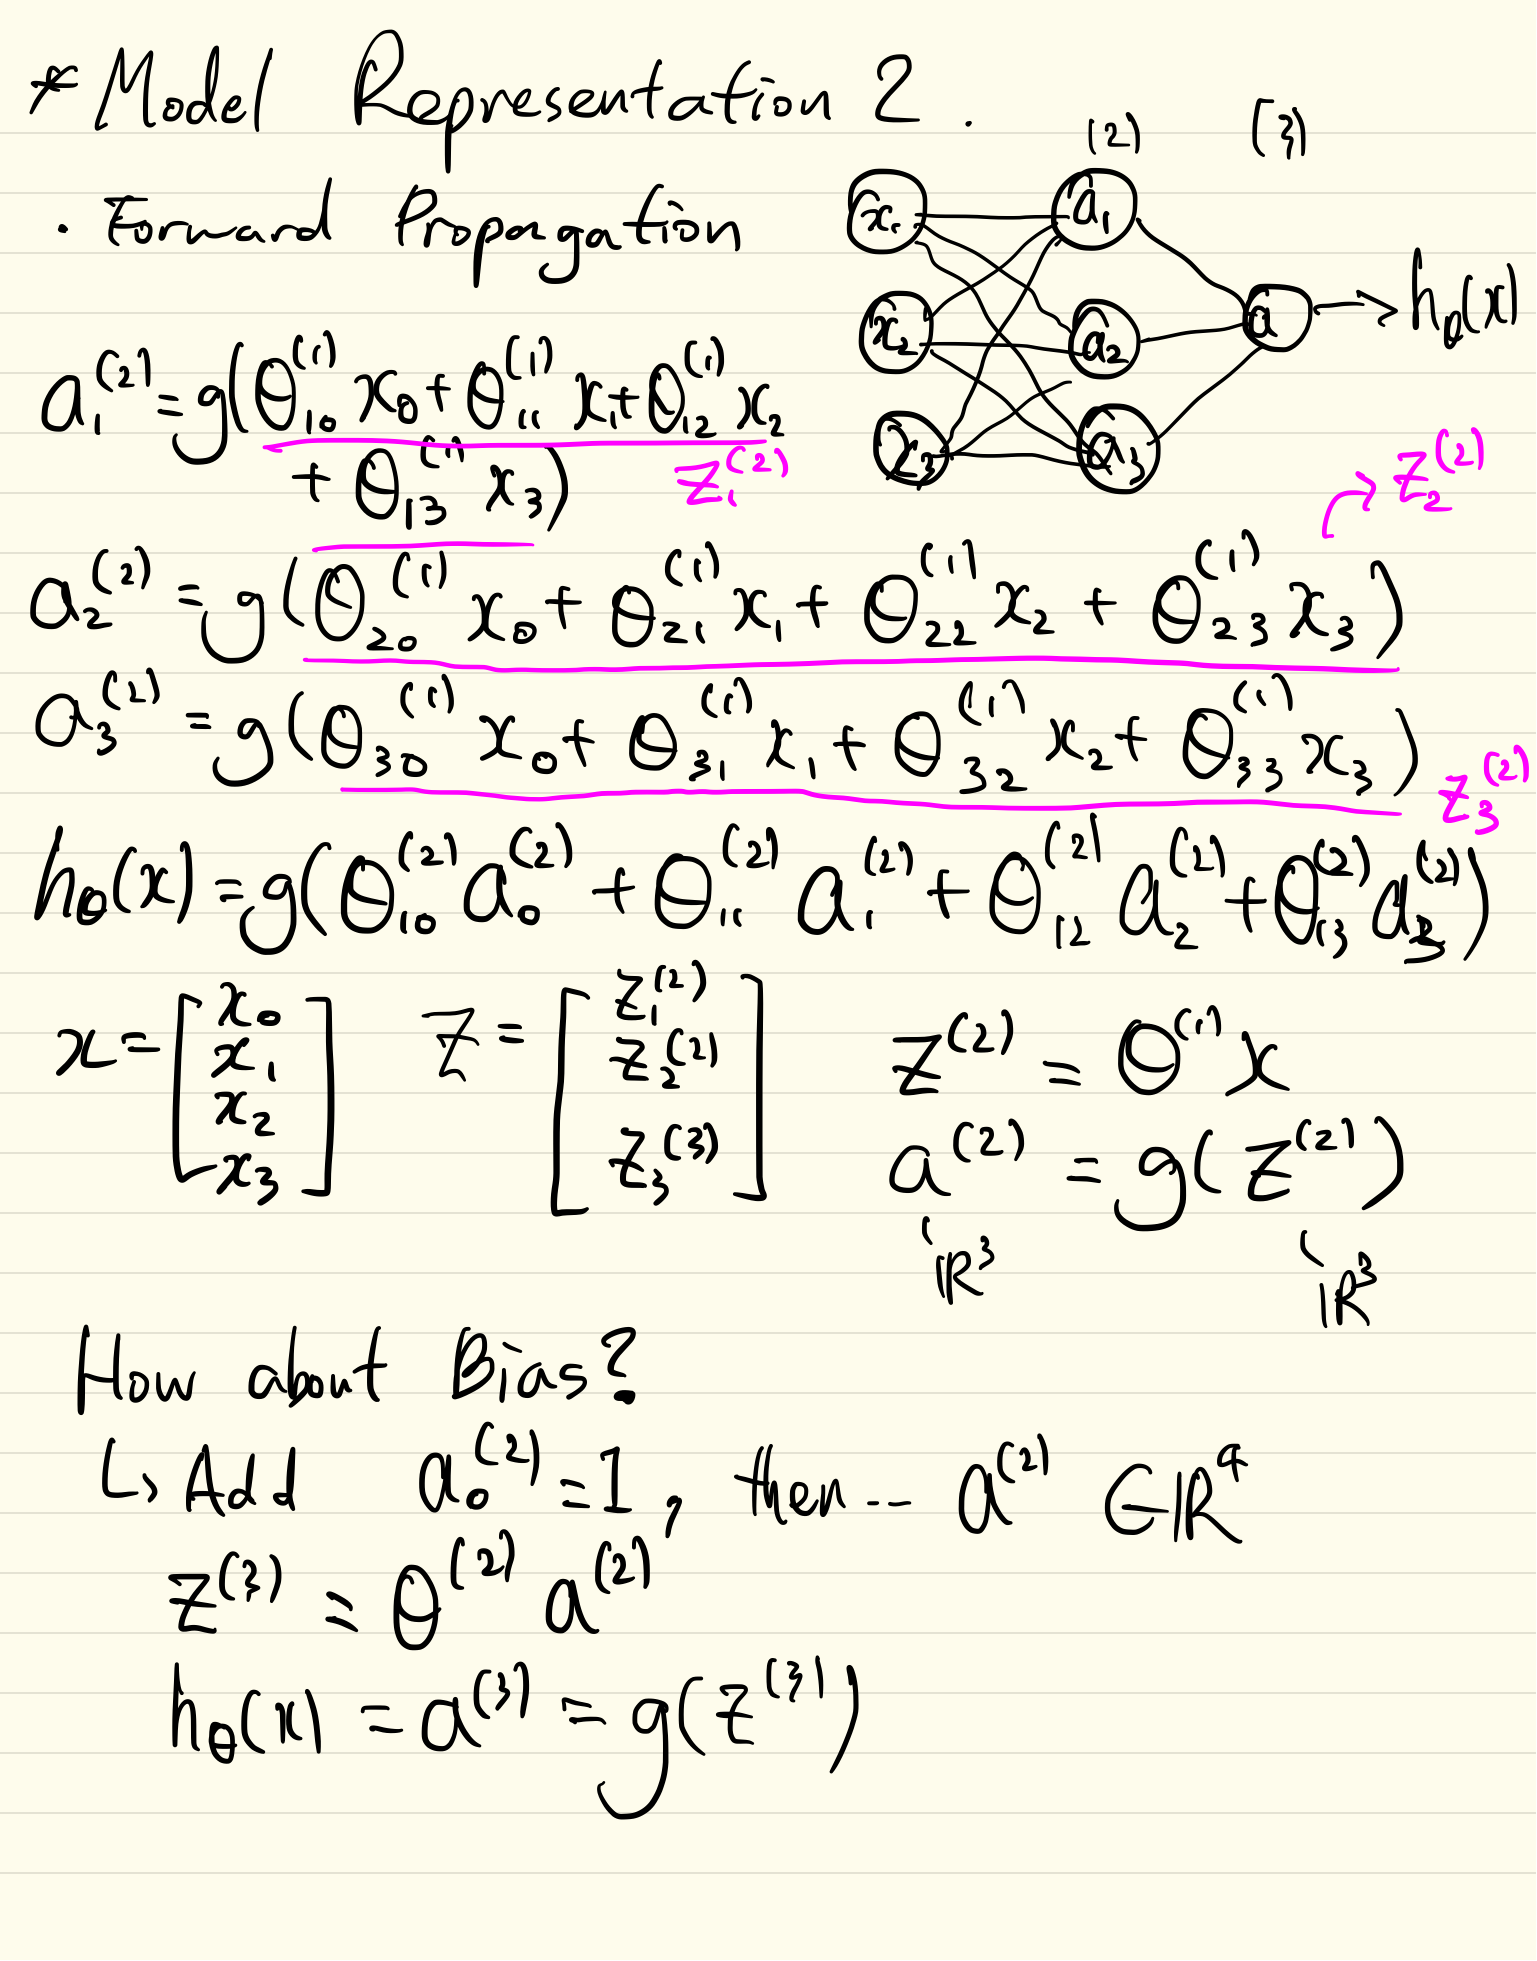 * Model Representation 2.
(2) (3)
· Forward Propagation
x₁ a₁
x₂ a₂ a → h_θ(x)
x₃ a₃
a₁^(2) = g(θ₁₀^(1) x₀ + θ₁₁^(1) x₁ + θ₁₂^(1) x₂
+ θ₁₃^(1) x₃) z₁^(2)
→ z₂^(2)
a₂^(2) = g(θ₂₀^(1) x₀ + θ₂₁^(1) x₁ + θ₂₂^(1) x₂ + θ₂₃^(1) x₃)
a₃^(2) = g(θ₃₀^(1) x₀ + θ₃₁^(1) x₁ + θ₃₂^(1) x₂ + θ₃₃^(1) x₃) z₃^(2)
h_θ(x) = g(θ₁₀^(2) a₀^(2) + θ₁₁^(2) a₁^(2) + θ₁₂^(2) a₂^(2) + θ₁₃^(2) a₃^(2))
x = [x₀ x₁ x₂ x₃] z = [z₁^(2) z₂^(2) z₃^(3)] z^(2) = θ^(1) x
a^(2) = g(z^(2))
ℝ³ ℝ³
How about Bias?
↳ Add a₀^(2) = 1, then... a^(2) ∈ ℝ⁴
z^(3) = θ^(2) a^(2)
h_θ(x) = a^(3) = g(z^(3))